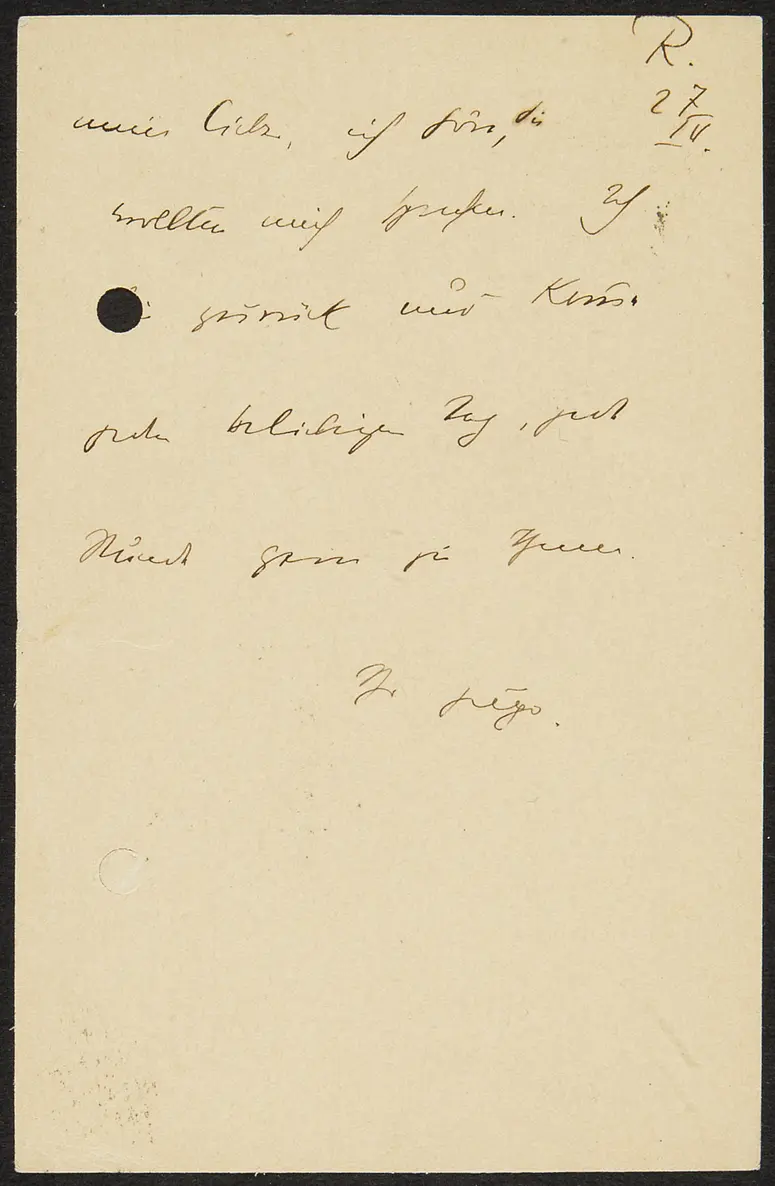 R.
27
IV.
meine Liebe, ich höre, Sie
wollten mich sprechen. Ich
bin zurück und komme
jeden beliebigen Tag, jede
Stunde gern zu Ihnen.
Ihr